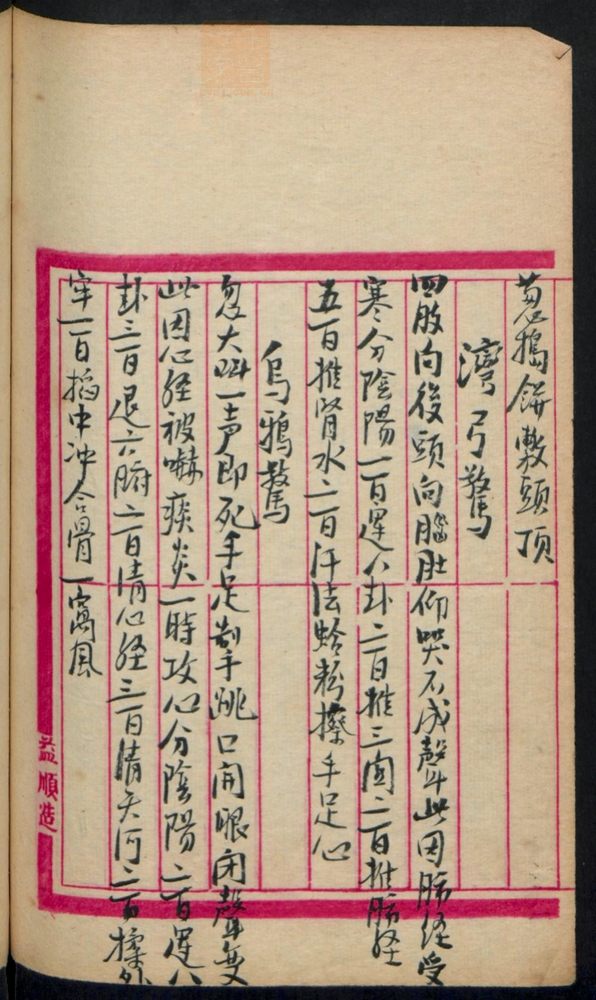 葱搗餅敷頭頂
灣弓驚
四肢向後頭向腦肚仰哭不成聲此因肺经受
寒分陰陽一百運八卦二百推三関二百推肺经
五百推腎水二百汗法蛤粉擦手足心
烏鴉驚
忽大呌一声即死手足制手跳口開眼闭聲变
此因心经被嚇痰炎一時攻心分陰陽二百運八
卦三百退六腑二百清心经三百清天河二百揉外
牢一百掐中冲合骨一窩風
益順造